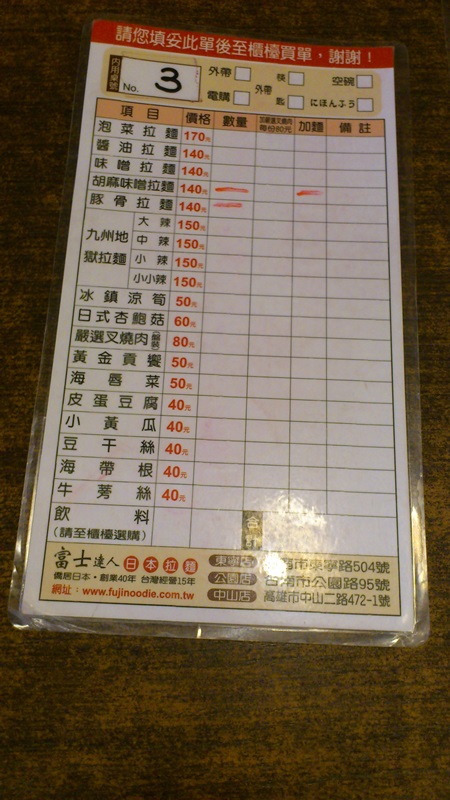 請您填妥此單後至櫃檯買單，謝謝！
內用桌號 No. 3 外帶 筷 空碗
電購 外帶 匙 にほんふう
項目 價格 數量 加麵 備註
泡菜拉麵 170元
醬油拉麵 140元
味噌拉麵 140元
胡麻味噌拉麵 140元
豚骨拉麵 140元
九州地獄拉麵 大辣 150元
中辣 150元
小辣 150元
小小辣 150元
冰鎮涼筍 50元
日式杏鮑菇 60元
嚴選叉燒肉 80元
黃金貢饗 50元
海唇菜 50元
皮蛋豆腐 40元
小黃瓜 40元
豆干絲 40元
海帶根 40元
牛蒡絲 40元
飲料
(請至櫃檯選購) 合計
富士達人 日本拉麵
僑居日本・創業40年 台灣經營15年
網址：www.fujinoodie.com.tw
東寧店 南市東寧路504號
公園店 台南市公園路95號
中山店 高雄市中山二路472-1號